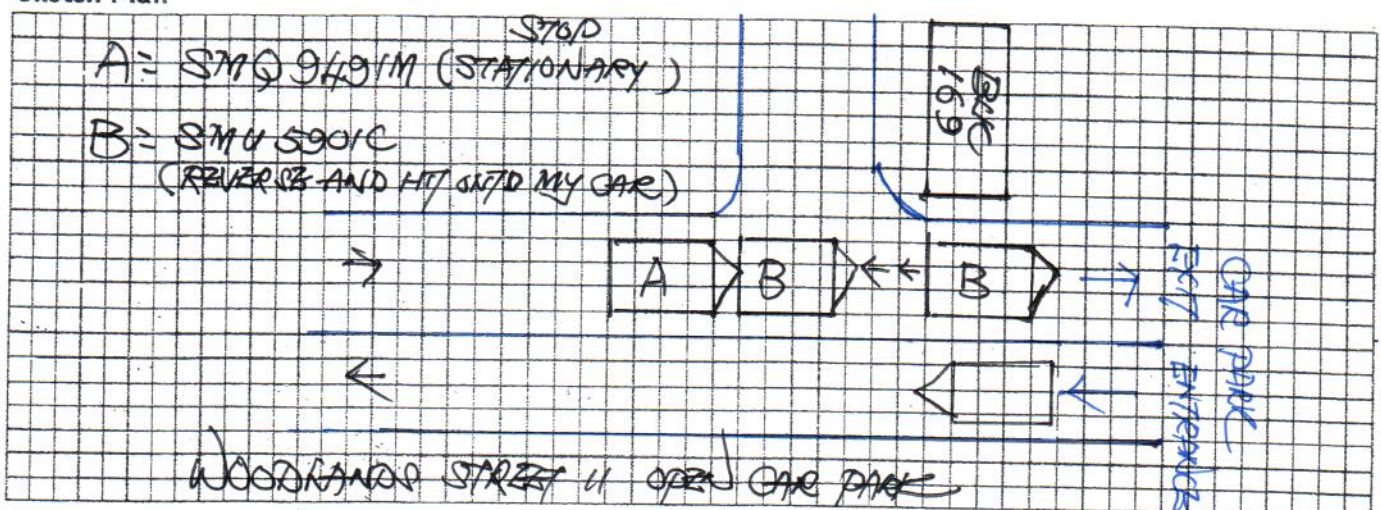 STOP
A = SMQ9491M (STATIONARY)
B = SMU5901C
(REVERSE AND HIT ONTO MY CAR)
BLK
169
A
B
B
CAR PARK
EXIT
ENTRANCE
WOODLANDS STREET 11 OPEN CAR PARK